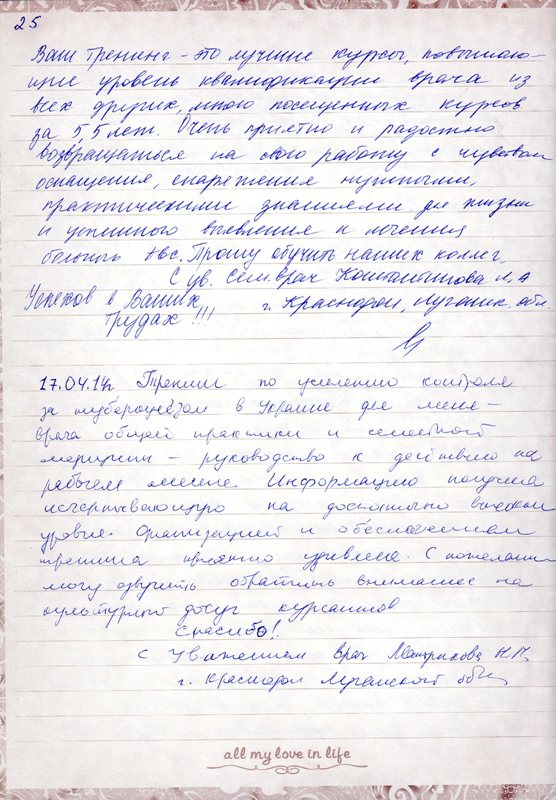 25
Ваш тренинг - это лучшие курсы, повышаю-
щие уровень квалификации врача из
всех других, мною посещенных курсов
за 5,5 лет. Очень приятно и радостно
возвращаться на свою работу с чувством
оснащения, снаряжения нужными,
практическими знаниями для жизни
и успешного выявления и лечения
больных твс. Прошу обучить наших коллег.
С ув. сем. врач Константинова Л.А
Успехов в Ваших г. Краснодон, Луганск. обл.
трудах !!!
17.04.14г Тренинг по усилению контроля
за туберкулёзом в Украине для меня -
врача общей практики и семейной
медицины - руководство к действию на
рабочем месте. Информацию получила
исчерпывающую на достаточно высоком
уровне. Организацией и обеспечением
тренинга приятно удивлена. С пожеланий
могу озвучить обратить внимание на
культурный досуг курсантов
Спасибо!
С уважением врач Н.Н.
г. Краснодон Луганской обл.
all my love in life